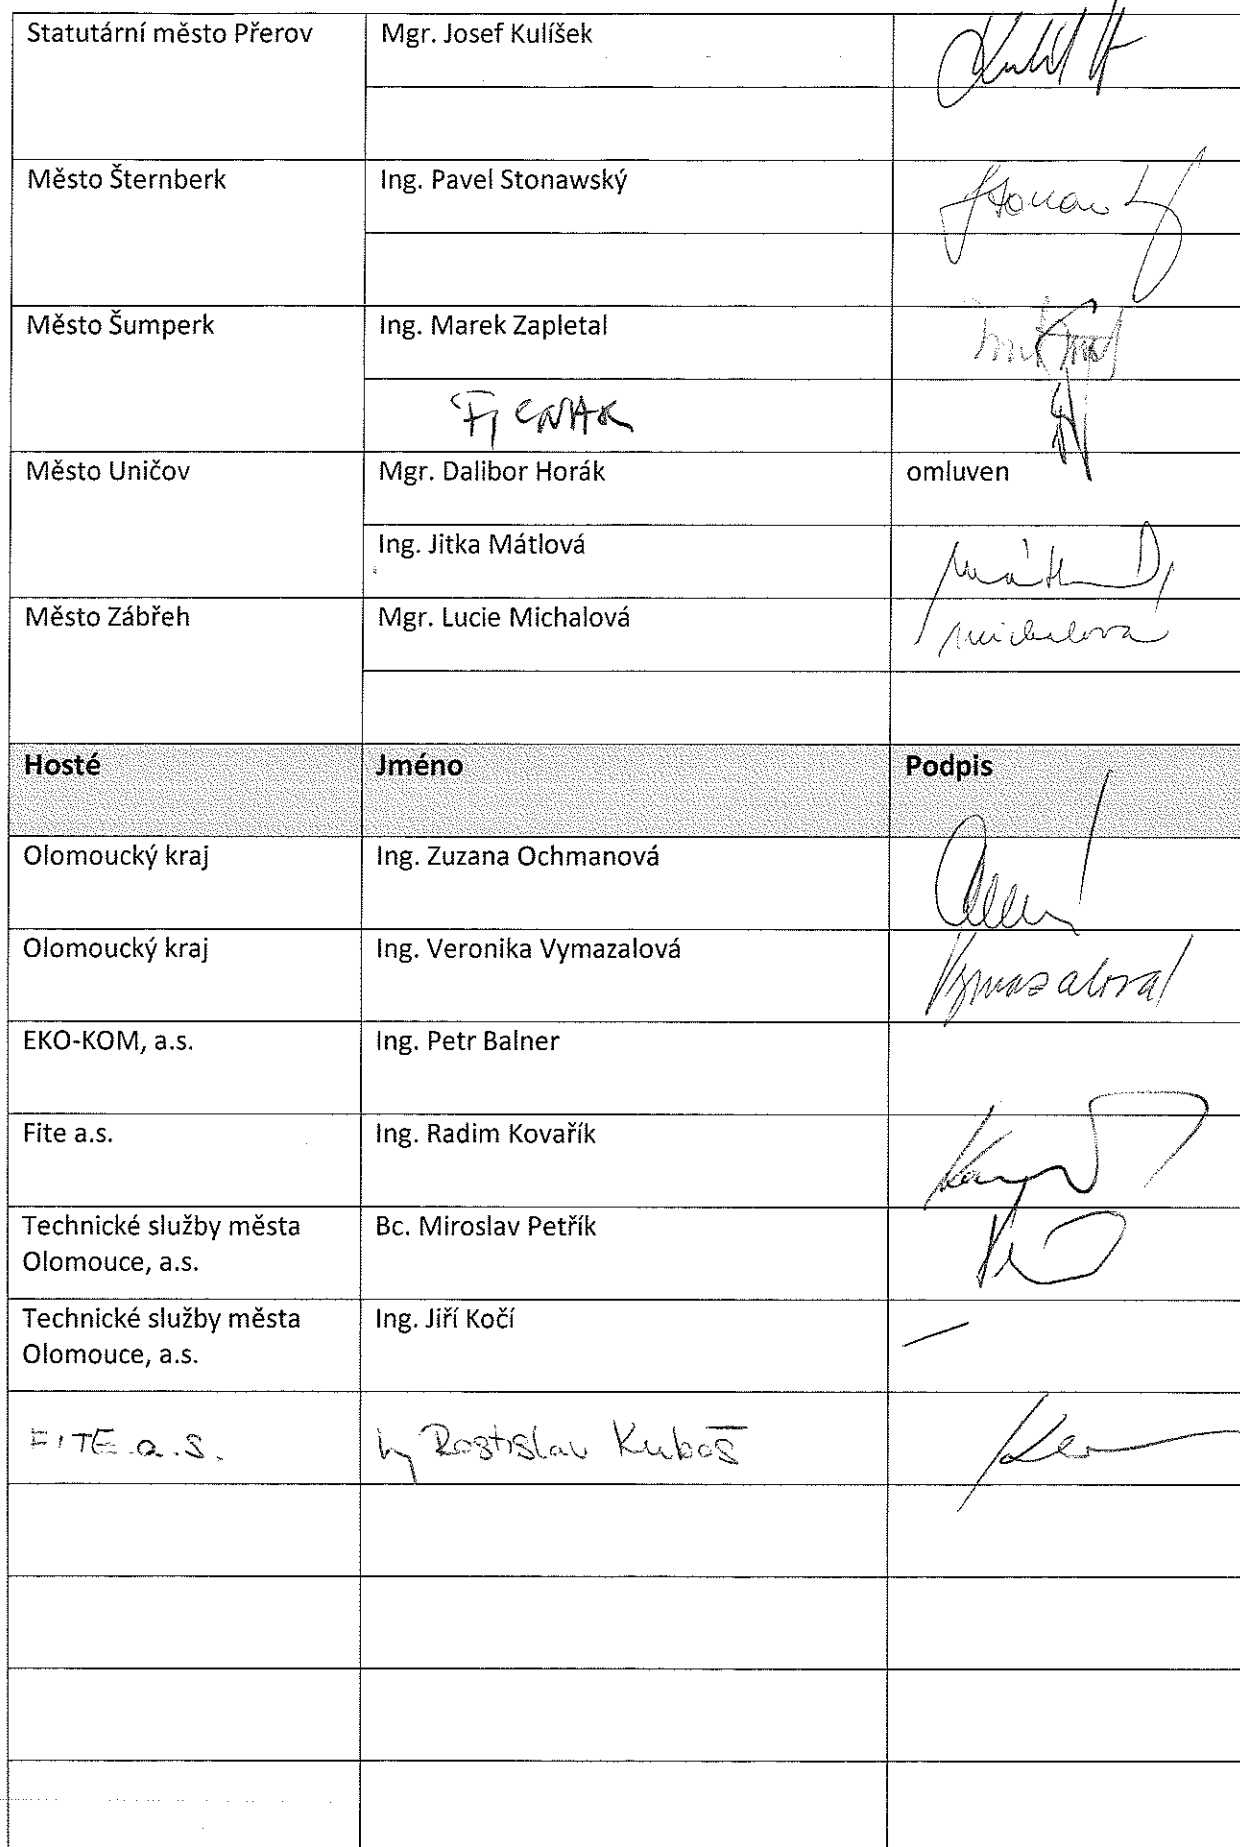 Statutární město Přerov
Mgr. Josef Kulíšek
Město Šternberk
Ing. Pavel Stonawský
Město Šumperk
Ing. Marek Zapletal
Město Uničov
Mgr. Dalibor Horák
omluven
Ing. Jitka Mátlová
Město Zábřeh
Mgr. Lucie Michalová
Michalová
Hosté Jméno Podpis
Olomoucký kraj
Ing. Zuzana Ochmanová
Olomoucký kraj
Ing. Veronika Vymazalová
Vymazalová
EKO-KOM, a.s.
Ing. Petr Balner
Fite a.s.
Ing. Radim Kovařík
Technické služby města
Olomouce, a.s.
Bc. Miroslav Petřík
Technické služby města
Olomouce, a.s.
Ing. Jiří Kočí
–
FITE a.s.
Rostislav Kuboš